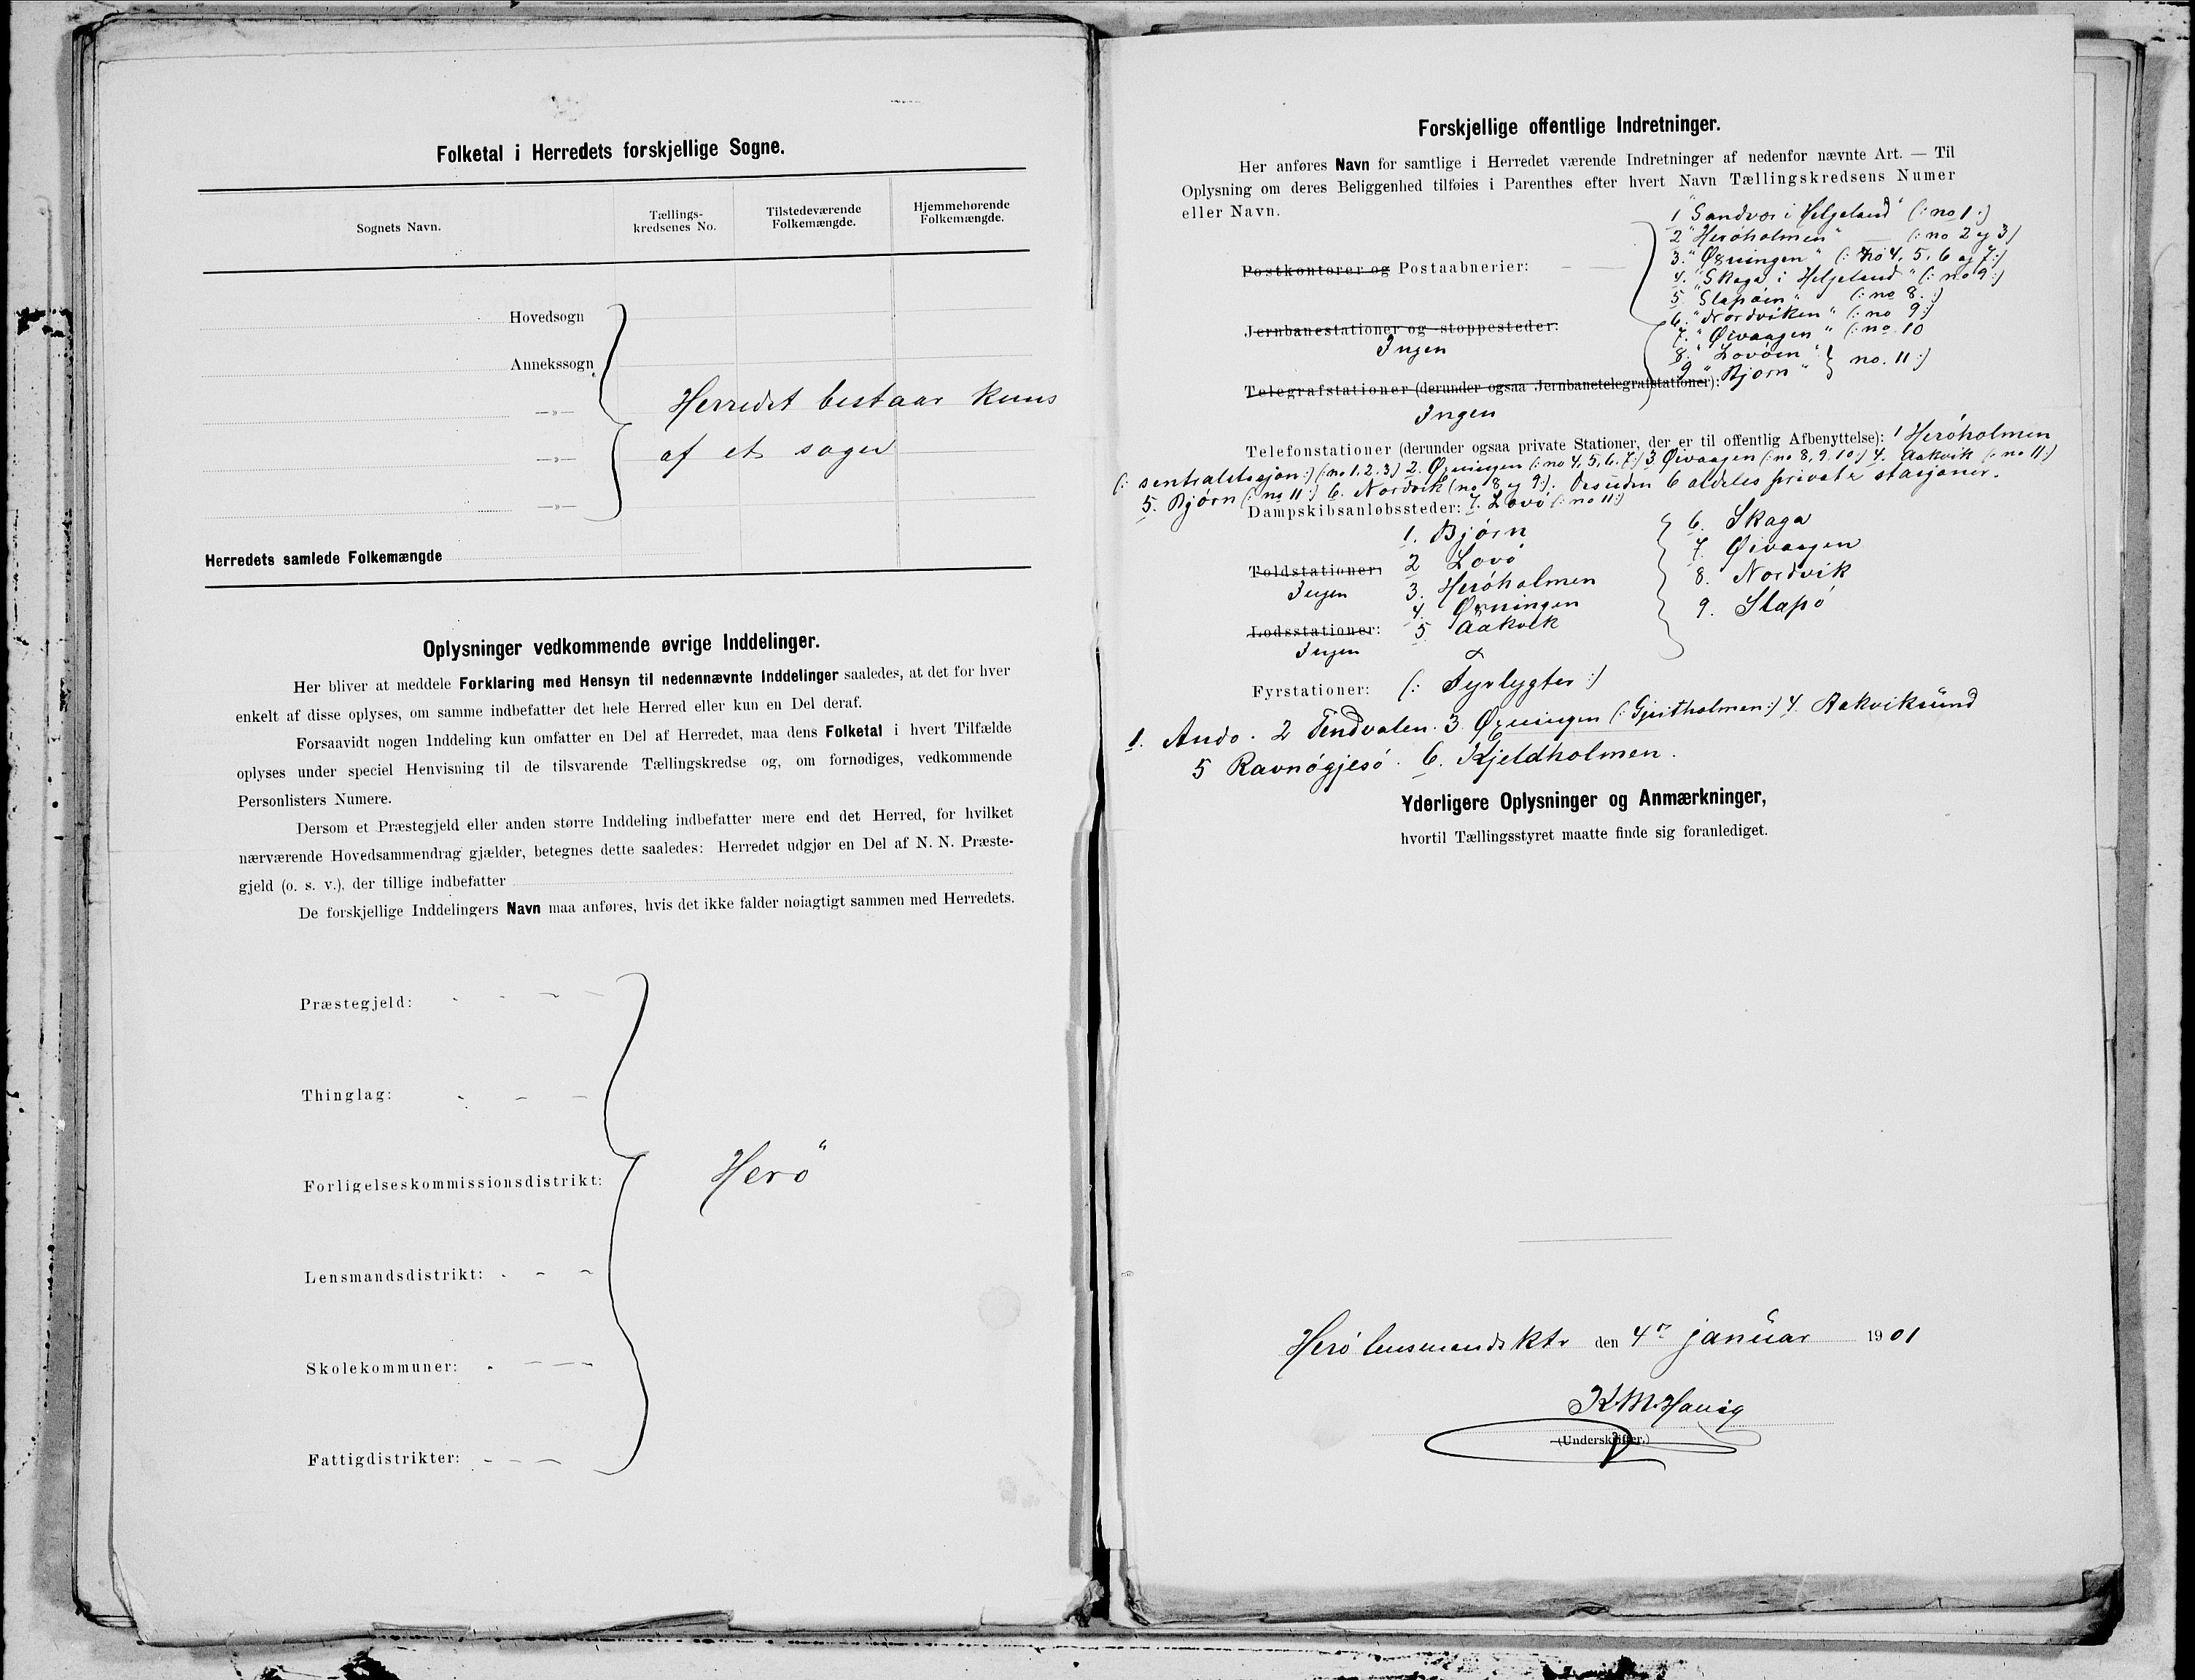 Folketal i Herredets forskjellige Sogne.
Sognets Navn.
Tællings-
kredsenes No.
Tilstedeværende
Folkemængde.
Hjemmehørende
Folkemængde.
Hovedsogn
Annekssogn
—»—
Herredet bestaar kuns
af et sogn
—»—
—»—
Herredets samlede Folkemængde
Oplysninger vedkommende øvrige Inddelinger.
Her bliver at meddele Forklaring med Hensyn til nedennævnte Inddelinger saaledes, at det for hver
enkelt af disse oplyses, om samme indbefatter det hele Herred eller kun en Del deraf.
Forsaavidt nogen Inddeling kun omfatter en Del af Herredet, maa dens Folketal i hvert Tilfælde
oplyses under speciel Henvisning til de tilsvarende Tællingskredse og, om fornødiges, vedkommende
Personlisters Numere.
Dersom et Præstegjeld eller anden større Inddeling indbefatter mere end det Herred, for hvilket
nærværende Hovedsammendrag gjælder, betegnes dette saaledes: Herredet udgjør en Del af N. N. Præste-
gjeld (o. s. v.), der tillige indbefatter
De forskjellige Inddelingers Navn maa anføres, hvis det ikke falder nøiagtigt sammen med Herredets.
Præstegjeld:
Thinglag:
Forligelseskommissionsdistrikt:
Herö"
Lensmandsdistrikt:
Skolekommuner:
Fattigdistrikter:
Forskjellige offentlige Indretninger.
Her anføres Navn for samtlige i Herredet værende Indretninger af nedenfor nævnte Art. — Til
Oplysning om deres Beliggenhed tilføies i Parenthes efter hvert Navn Tællingskredsens Numer
eller Navn.
1 "Sandvær i Helgeland" (: no 1 :)
2 "Heröholmen" — (: no 2 og 3)
Postkontorer og Postaabnerier:
3. "Øxningen" (: no 4, 5, 6 og 7 :)
4. "Skaga i Helgeland" (: no 9 :)
5 "Slapöen" (: no 8. :)
6. "Nordviken" (: no 9 :)
Jernbanestationer og -stoppesteder:
Ingen
7. "Øivaagen" (: no 10
8. "Lovöen"
9 "Bjørn" } no. 11 :)
Telegrafstationer (derunder ogsaa Jernbanetelegrafstationer):
Ingen
Telefonstationer (derunder ogsaa private Stationer, der er til offentlig Afbenyttelse): 1 Heröholmen
(: sentralstasjon :) (: no 1, 2, 3) 2. Øxningen (: no 4, 5, 6, 7 :) 3 Øivaagen (: no 8, 9, 10 :) 4. Aakvik (: no 11 :)
5. Bjørn (: no 11 :) 6. Nordvik (no 8 og 9 :). Desuden 6 aldeles private stasjoner.
Dampskibsanløbssteder: 7. Lovö (: no 11 :)
1. Bjørn
2 Lovö
3. Heröholmen
4. Øxningen
5 Aakvik
6. Skaga
7. Øivaagen
8. Nordvik
9. Slapö
Toldstationer:
Ingen
Lodsstationer:
Ingen
Fyrstationer: (: Fyrlygter :)
1. Andö. 2 Tendvalen. 3 Øxningen (: Gjeitholmen :) 4. Aakviksund
5 Ravnögjesö. 6. Kjeldholmen.
Yderligere Oplysninger og Anmærkninger,
hvortil Tællingsstyret maatte finde sig foranlediget.
Herö lensmandsktr den 4de januar 1901
K M. Havig
(Underskrifter.)